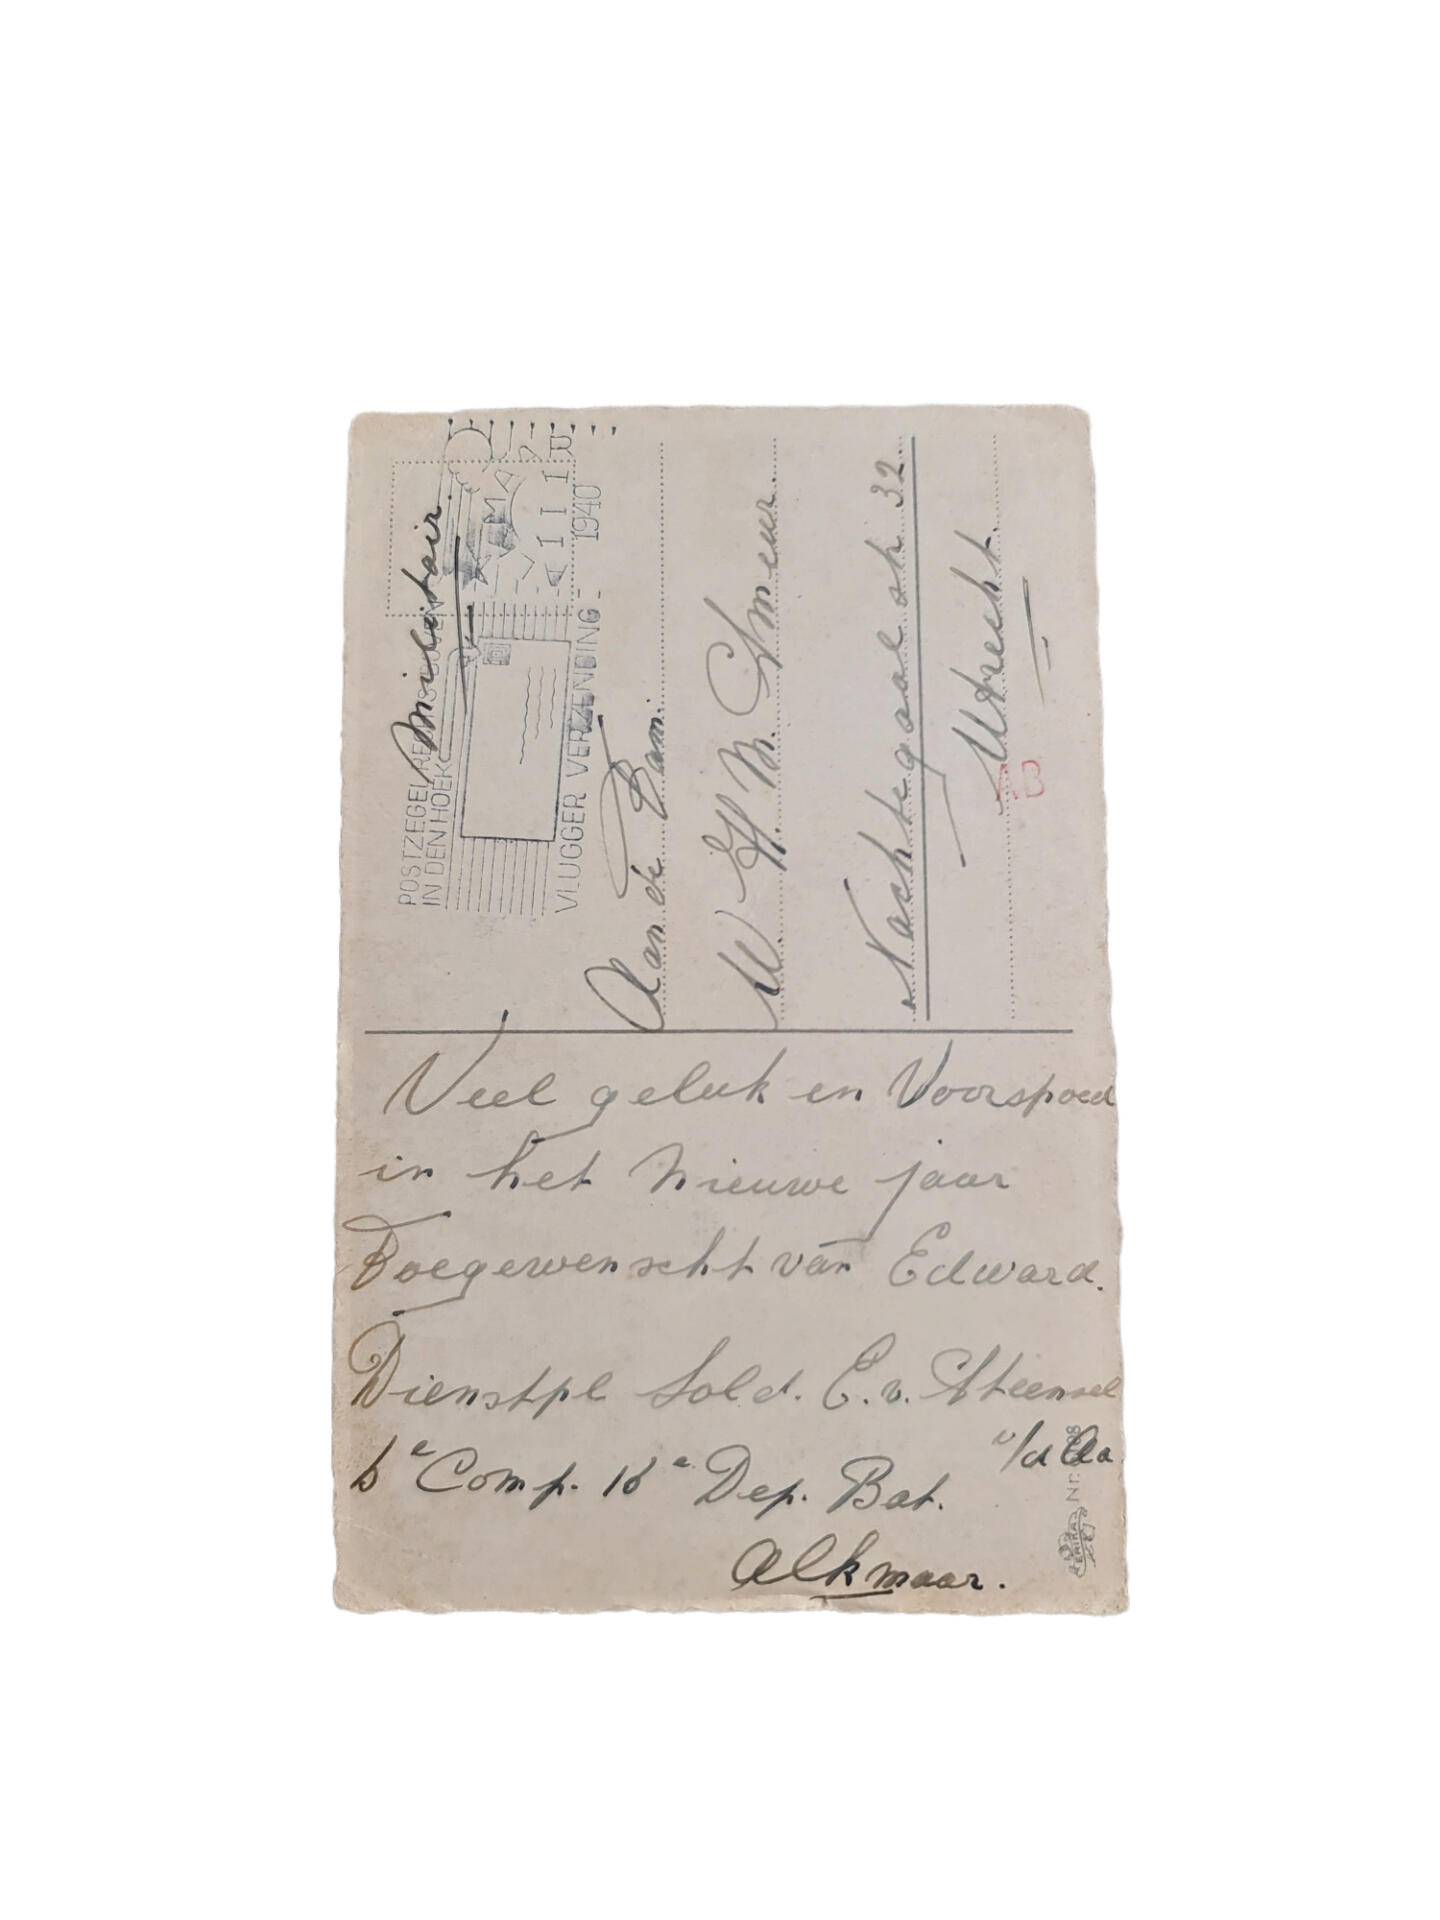 Militair.
POSTZEGEL RECHTS BOVEN
IN DEN HOEK
VLUGGER VERZENDING
ALKMAAR
1 I
1940
Aan de Fam.
W H M
Nachtegaalstr 32
Utrecht.
AB
Veel geluk en Voorspoed
in het Nieuwe jaar
Toegewenscht van Edward.
Dienstpl Sold. E. v. Steensel
v/d Aa
Comp. Dep. Bat.
Alkmaar.
ERIKA
Nr.